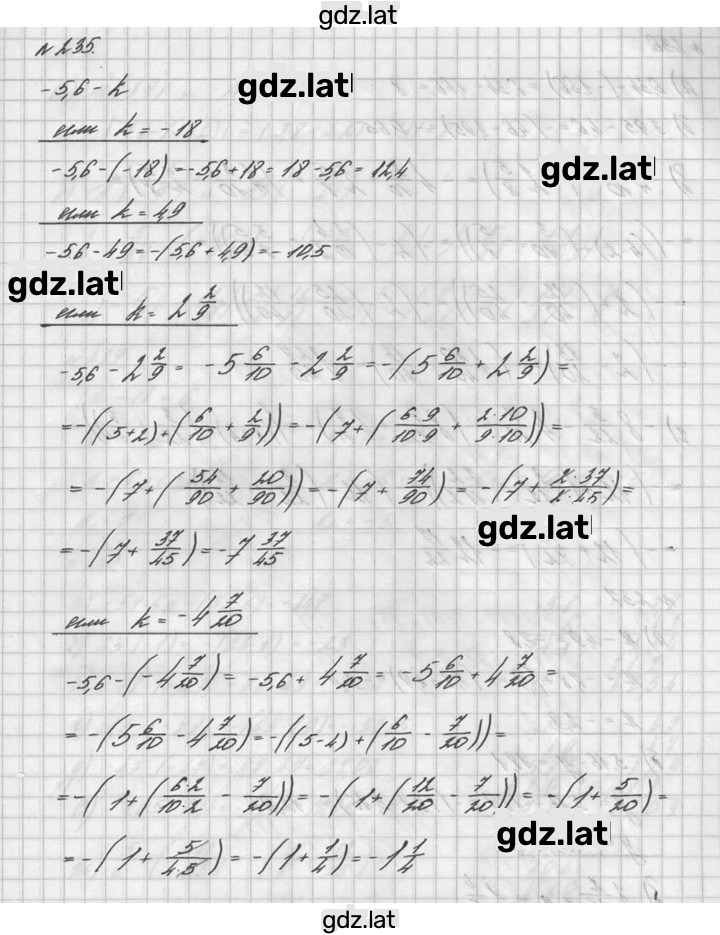 gdz.lat
№ 235.
-5,6 - k
gdz.lat
если k = -18
-5,6 - (-18) = -5,6 + 18 = 18 - 5,6 = 12,4
gdz.lat
если k = 4,9
-5,6 - 4,9 = -(5,6 + 4,9) = -10,5
gdz.lat
если k = 2 2/9
-5,6 - 2 2/9 = -5 6/10 - 2 2/9 = -(5 6/10 + 2 2/9) =
= -((5+2) + (6/10 + 2/9)) = -(7 + (6·9/10·9 + 2·10/9·10)) =
= -(7 + (54/90 + 20/90)) = -(7 + 74/90) = -(7 + 2·37/2·45) =
gdz.lat
= -(7 + 37/45) = -7 37/45
если k = -4 7/20
-5,6 - (-4 7/20) = -5,6 + 4 7/20 = -5 6/10 + 4 7/20 =
= -(5 6/10 - 4 7/20) = -((5-4) + (6/10 - 7/20)) =
= -(1 + (6·2/10·2 - 7/20)) = -(1 + (12/20 - 7/20)) = -(1 + 5/20) =
gdz.lat
= -(1 + 5/4·5) = -(1 + 1/4) = -1 1/4
gdz.lat